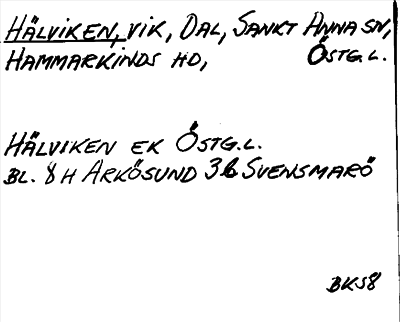 HÄLVIKEN, VIK, DAL, SANKT ANNA SN,
HAMMARKINDS HD, ÖSTG.L.
HÄLVIKEN EK ÖSTG.L.
BL. 8 H ARKÖSUND 3b SVENSMARÖ
BKS8